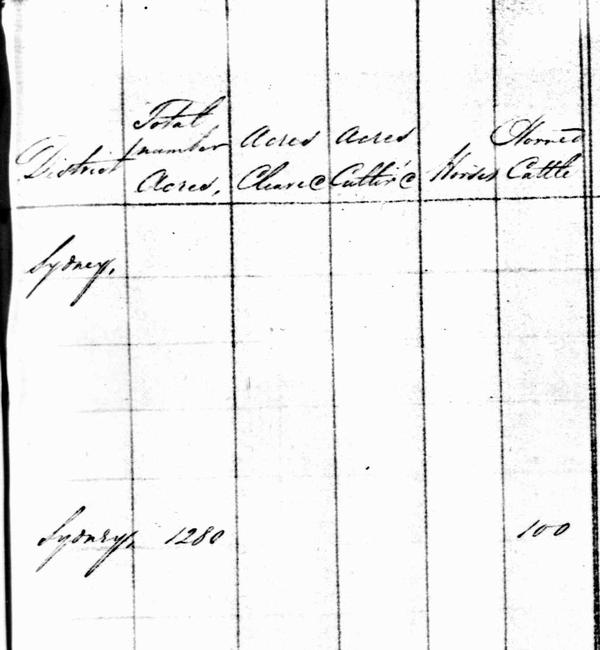 District
Total number Acres,
Acres Cleare@
Acres Cultiv'@
Horses
Horned Cattle
Sydney.
Sydney, 1280 100